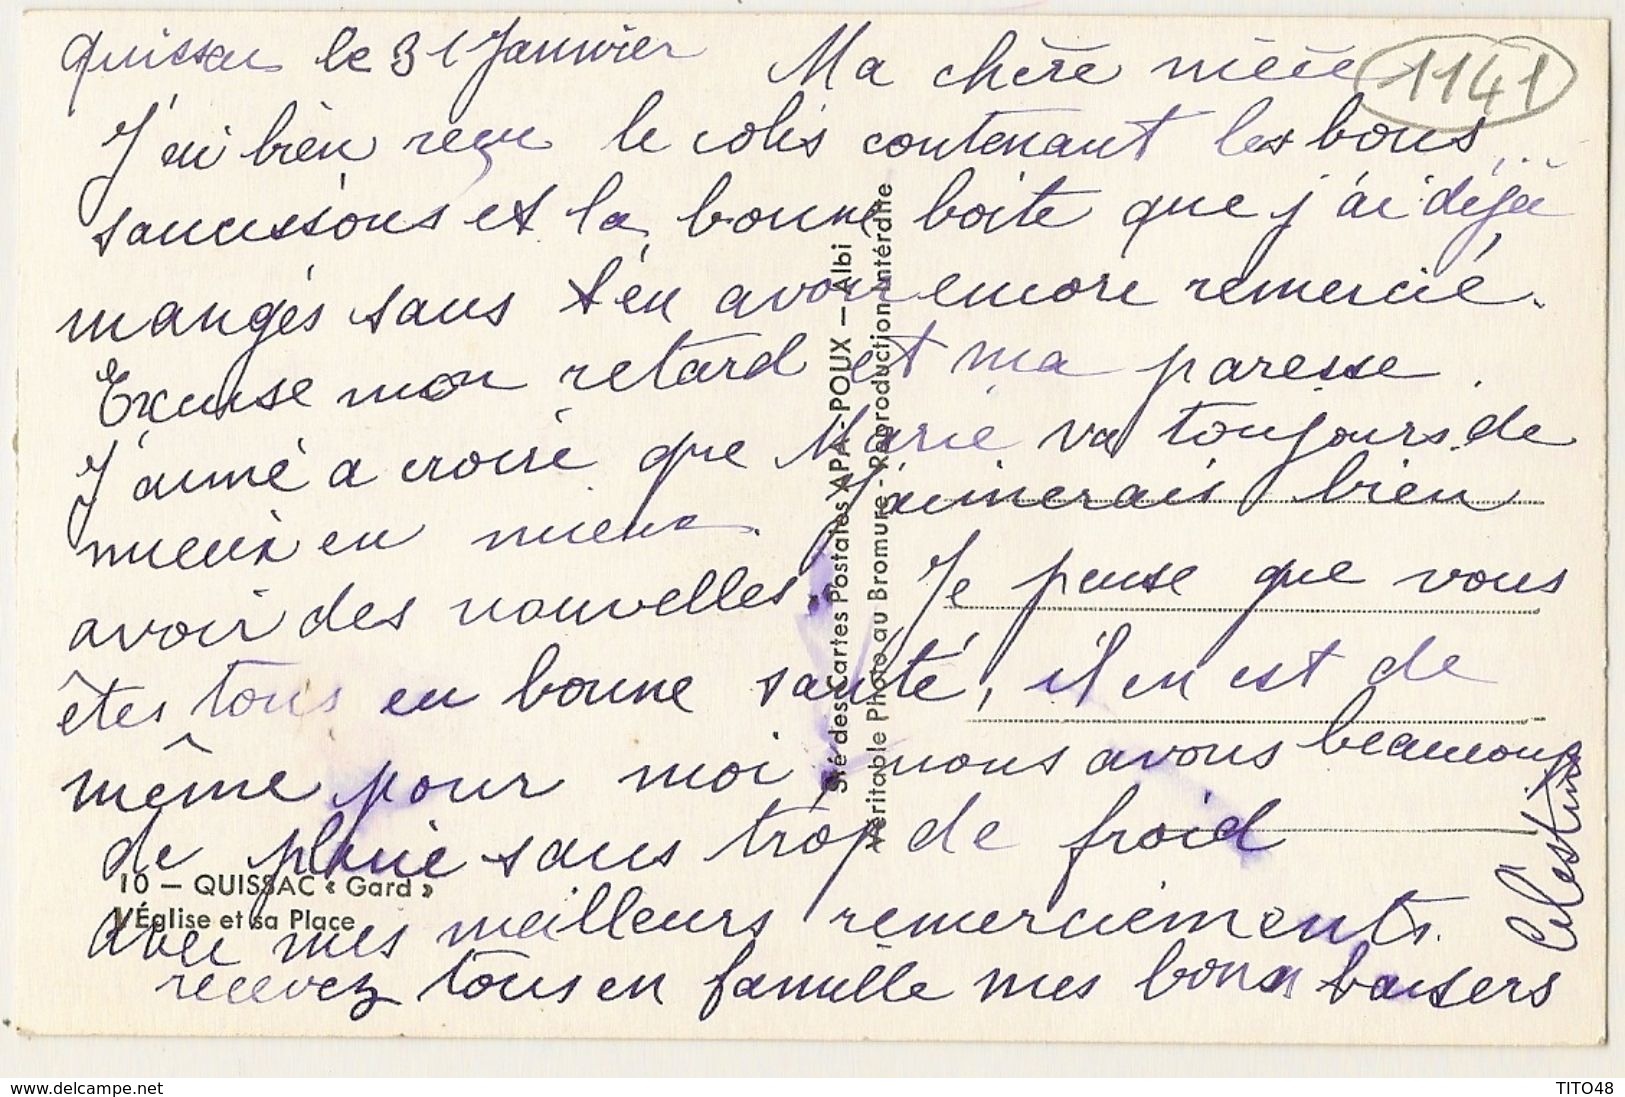 Quissac le 31 Janvier
Ma chère nièce
1141
J'ai bien reçu le colis contenant les bons
saucissons et la bonne boite que j'ai déjà
mangés sans t'en avoir encore remercié.
Excuse mon retard et ma paresse.
J'aime a croire que Marie va toujours de
mieux en mieux. J'aimerais bien
avoir des nouvelles. Je pense que vous
êtes tous en bonne santé, il en est de
même pour moi, nous avons beaucoup
de pluie sans trop de froid
avec mes meilleurs remerciements.
recevez tous en famille mes bons baisers
Célestine
Sté des Cartes Postales APA-POUX — Albi
Véritable Photo au Bromure - Reproduction intérdite
10 — QUISSAC « Gard »
L'Église et sa Place
www.delcampe.net
TITO48